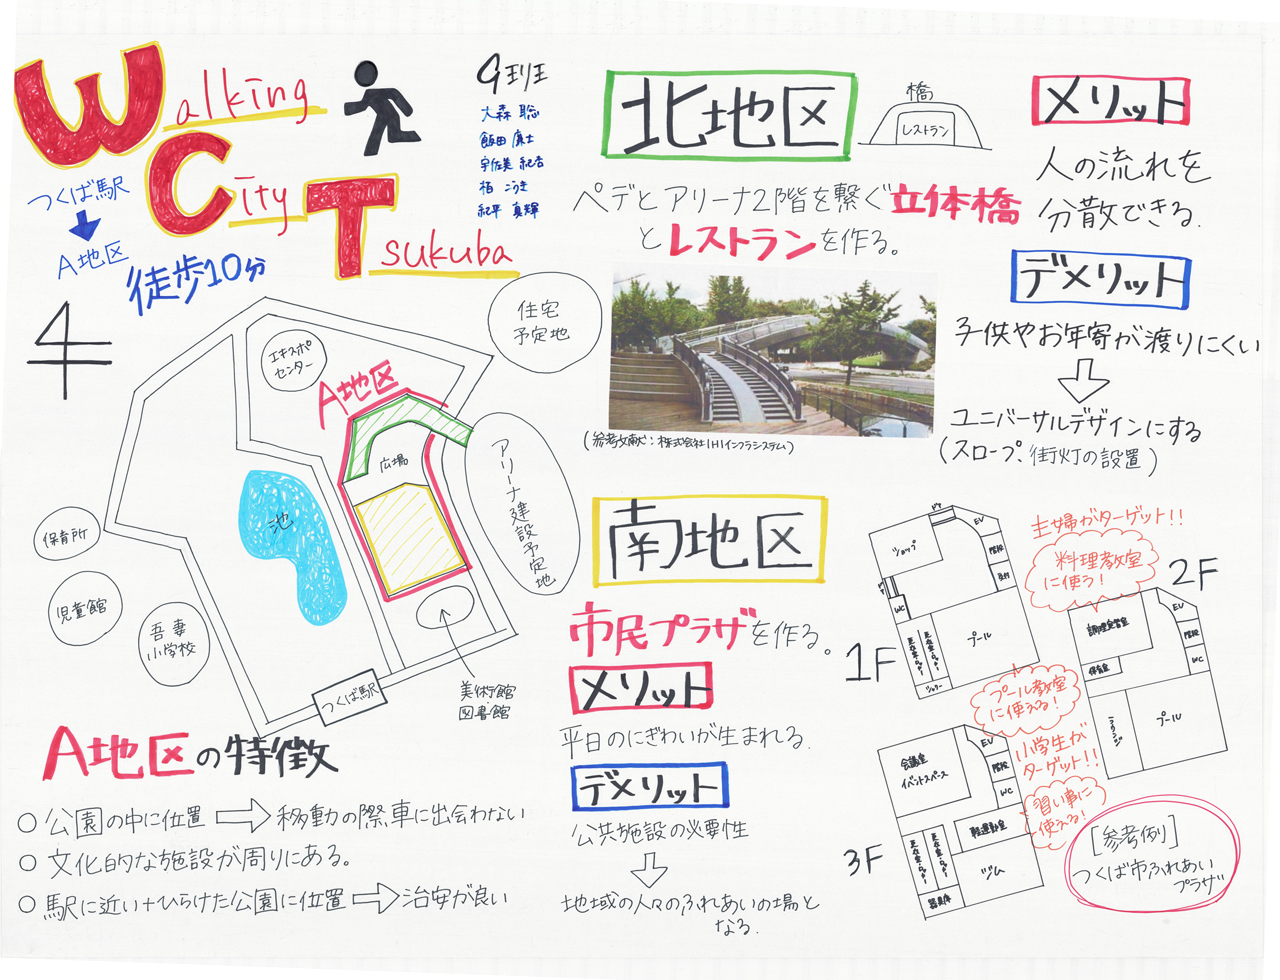 Walking
City
Tsukuba
つくば駅
A地区
徒歩10分
9班
大森 聡
飯田 廉士
宇佐美 紀杏
栢 こうき
紀平 真輝
北地区
橋
レストラン
ペデとアリーナ2階を繋ぐ立体橋
とレストランを作る。
(参考文献:株式会社IHIインフラシステム)
メリット
人の流れを
分散できる.
デメリット
子供やお年寄が渡りにくい
ユニバーサルデザインにする
(スロープ、街灯の設置)
住宅
予定地
エキスポ
センター
A地区
広場
アリーナ建設予定地
池
保育所
児童館
吾妻
小学校
つくば駅
美術館
図書館
A地区の特徴
○ 公園の中に位置 ⇒ 移動の際、車に出会わない
○ 文化的な施設が周りにある。
○ 駅に近い+ひらけた公園に位置 ⇒ 治安が良い
南地区
市民プラザを作る。
メリット
平日のにぎわいが生まれる.
デメリット
公共施設の必要性
地域の人々のふれあいの場と
なる.
1F
ドア
EV
ショップ
階段
受付
WC
プール
更衣室・ロッカー
更衣室・ロッカー
シャワー
主婦がターゲット!!
料理教室
に使う!
2F
EV
調理実習室
階段
WC
保育室
ラウンジ
プール
プール教室
に使える!
小学生が
ターゲット!!
習い事に
使える!
3F
EV
会議室
イベントスペース
階段
WC
軽運動室
更衣室・ロッカー
更衣室・ロッカー
ジム
器具庫
[参考例]
つくば市ふれあい
プラザ